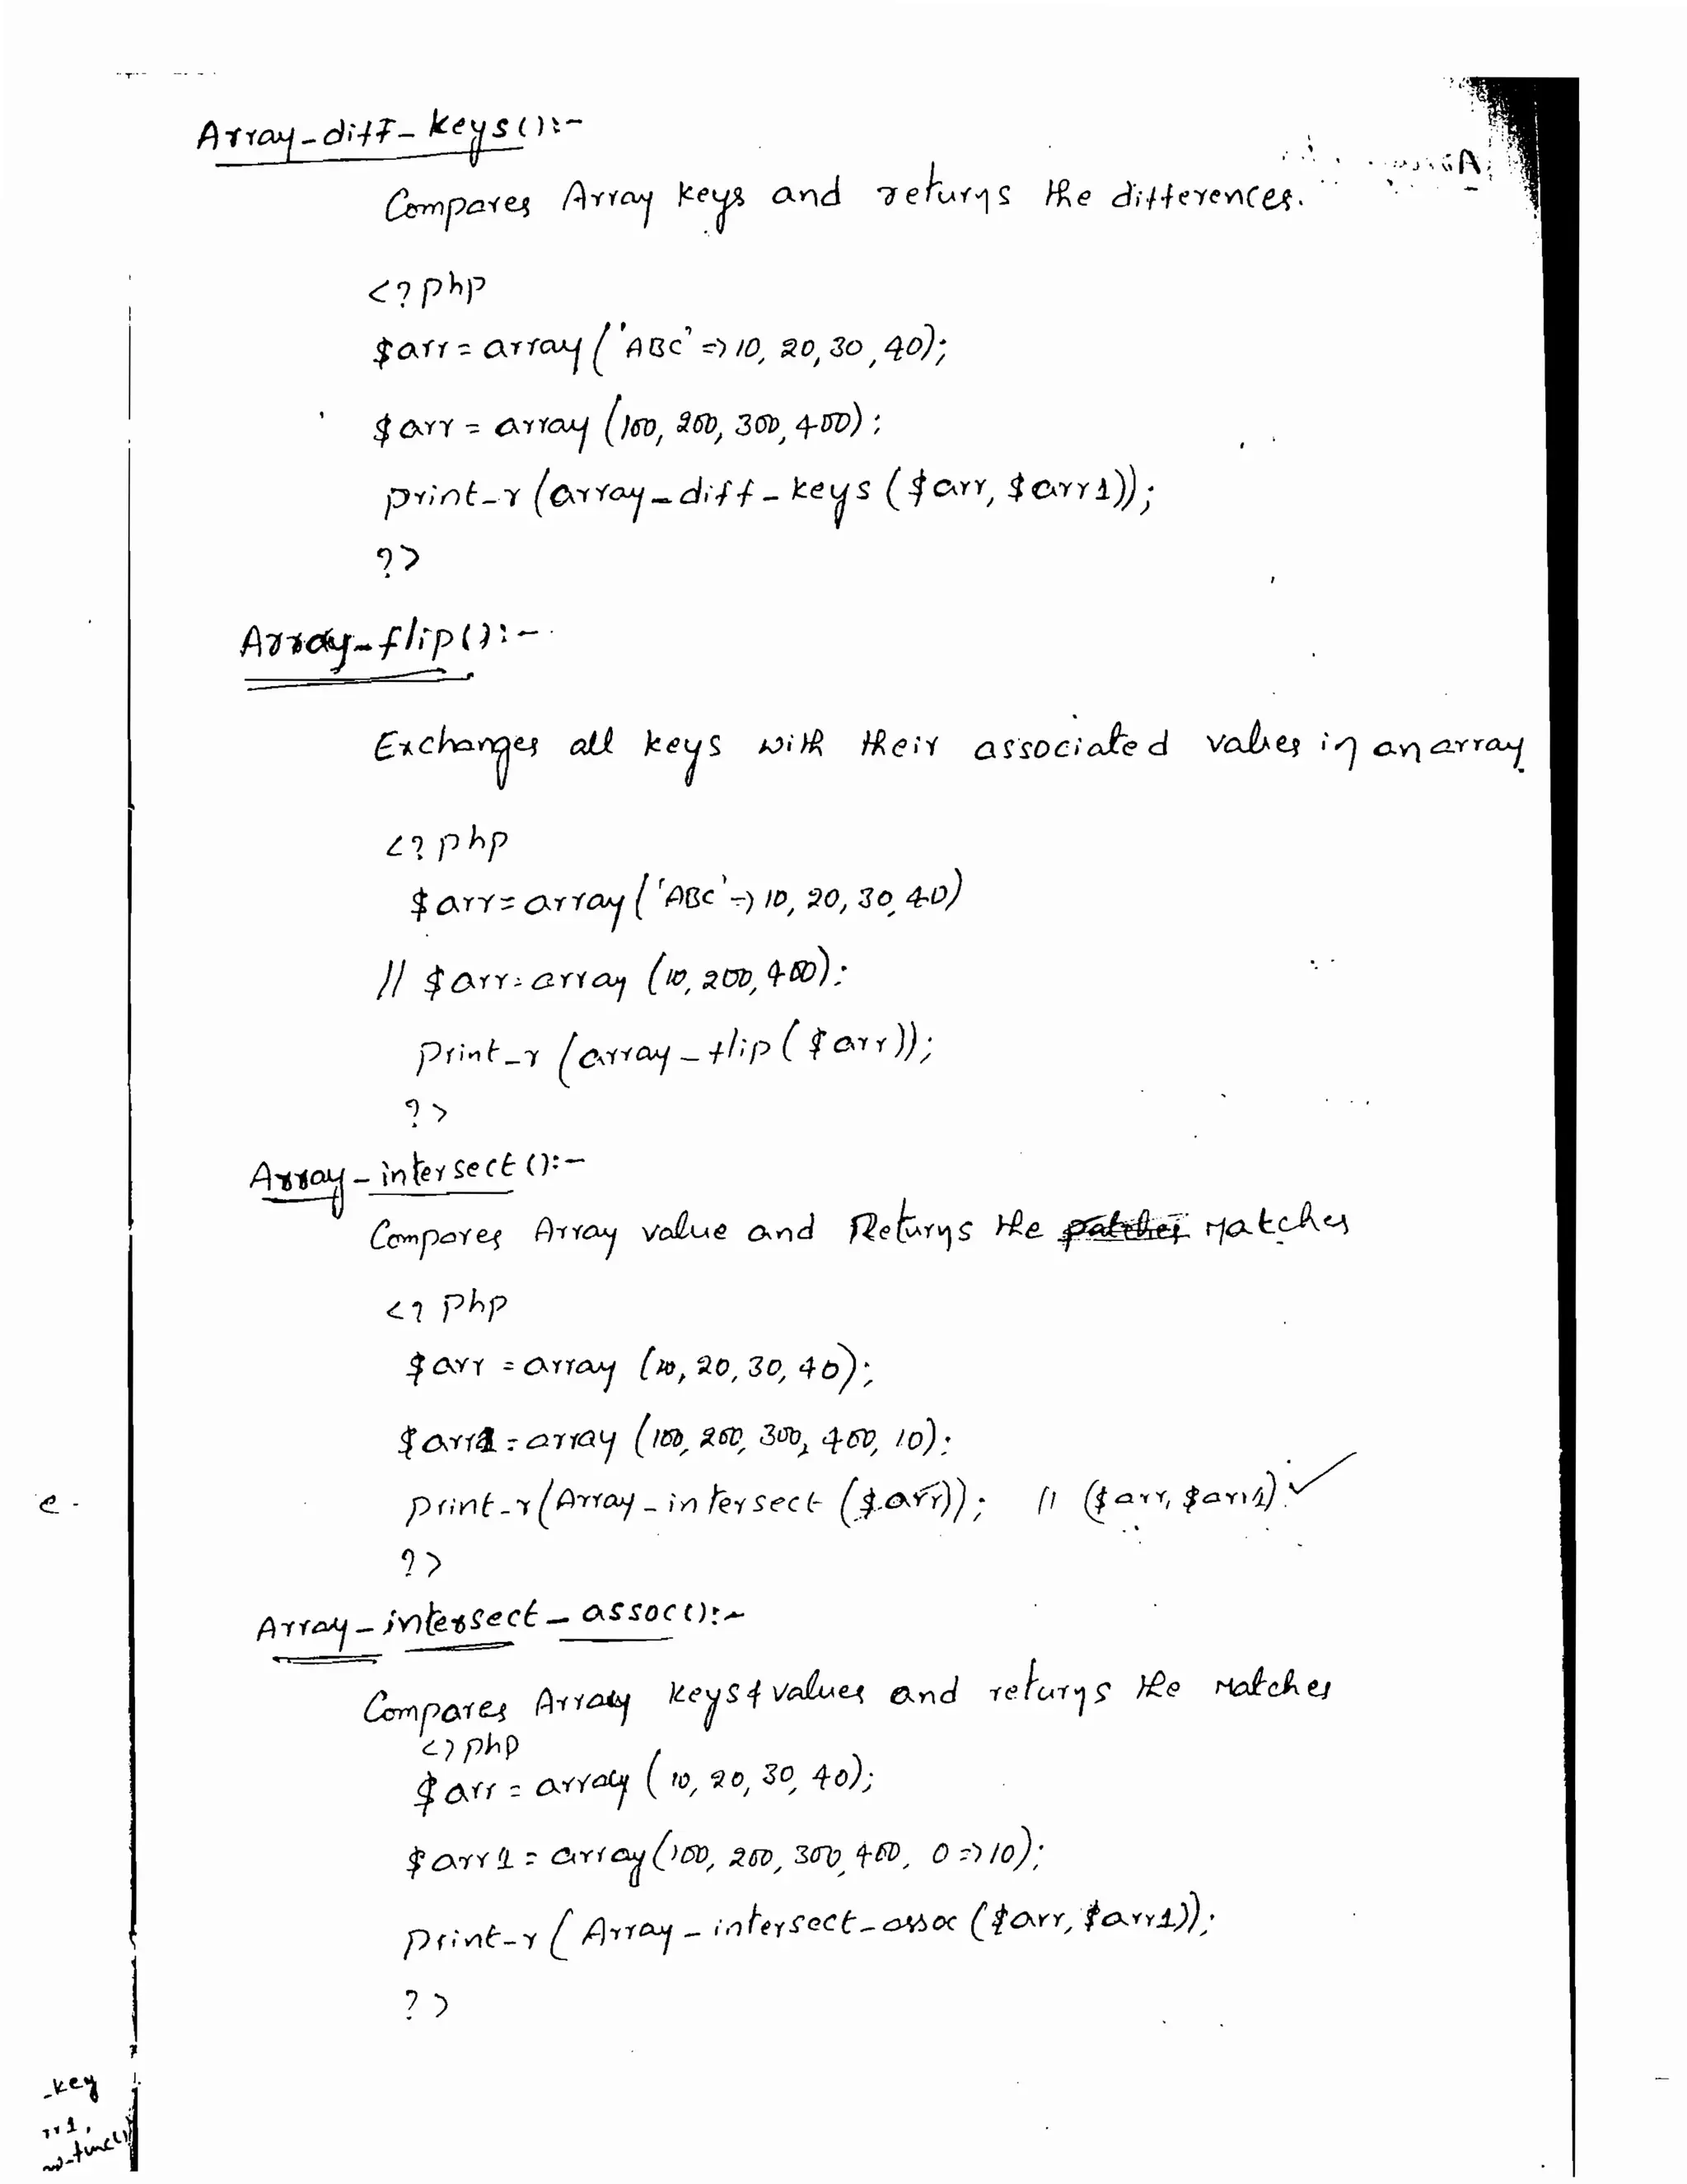 Array_diff_keys():-
Compares Array keys and returns the differences.
<?php
$arr = array('ABC' => 10, 20, 30, 40);
$arr = array (100, 200, 300, 400);
print_r (array_diff_keys ($arr, $arr1));
?>
Array_flip():-
Exchanges all keys with their associated values in an array.
<?php
$arr = array('ABC' => 10, 20, 30, 40)
// $arr = array (10, 200, 400);
Print_r (array_flip ($arr));
?>
Array_intersect():-
Compares Array value and Returns the Matches
<? Php
$arr = array (10, 20, 30, 40);
$arr1 = array (100, 200, 300, 400, 10);
print_r (Array_intersect ($arr)); // ($arr, $arr1) ✓
?>
Array_intersect_assoc():-
Compares Array keys & values and returns the Matches
<?php
$arr = array (10, 20, 30, 40);
$arr1 = array (100, 200, 300, 400, 0 => 10);
print_r (Array_intersect_assoc ($arr, $arr1));
?>
e.
_key
rr1,
_func()